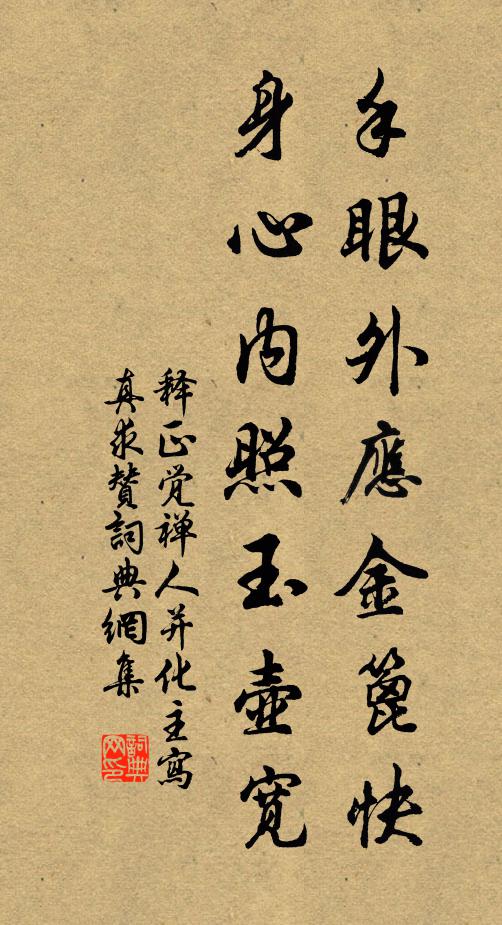 手眼外應金篦快
身心内照玉壺寬
释正觉禅人并化主寫
真求贊詞典網集
詞典網印